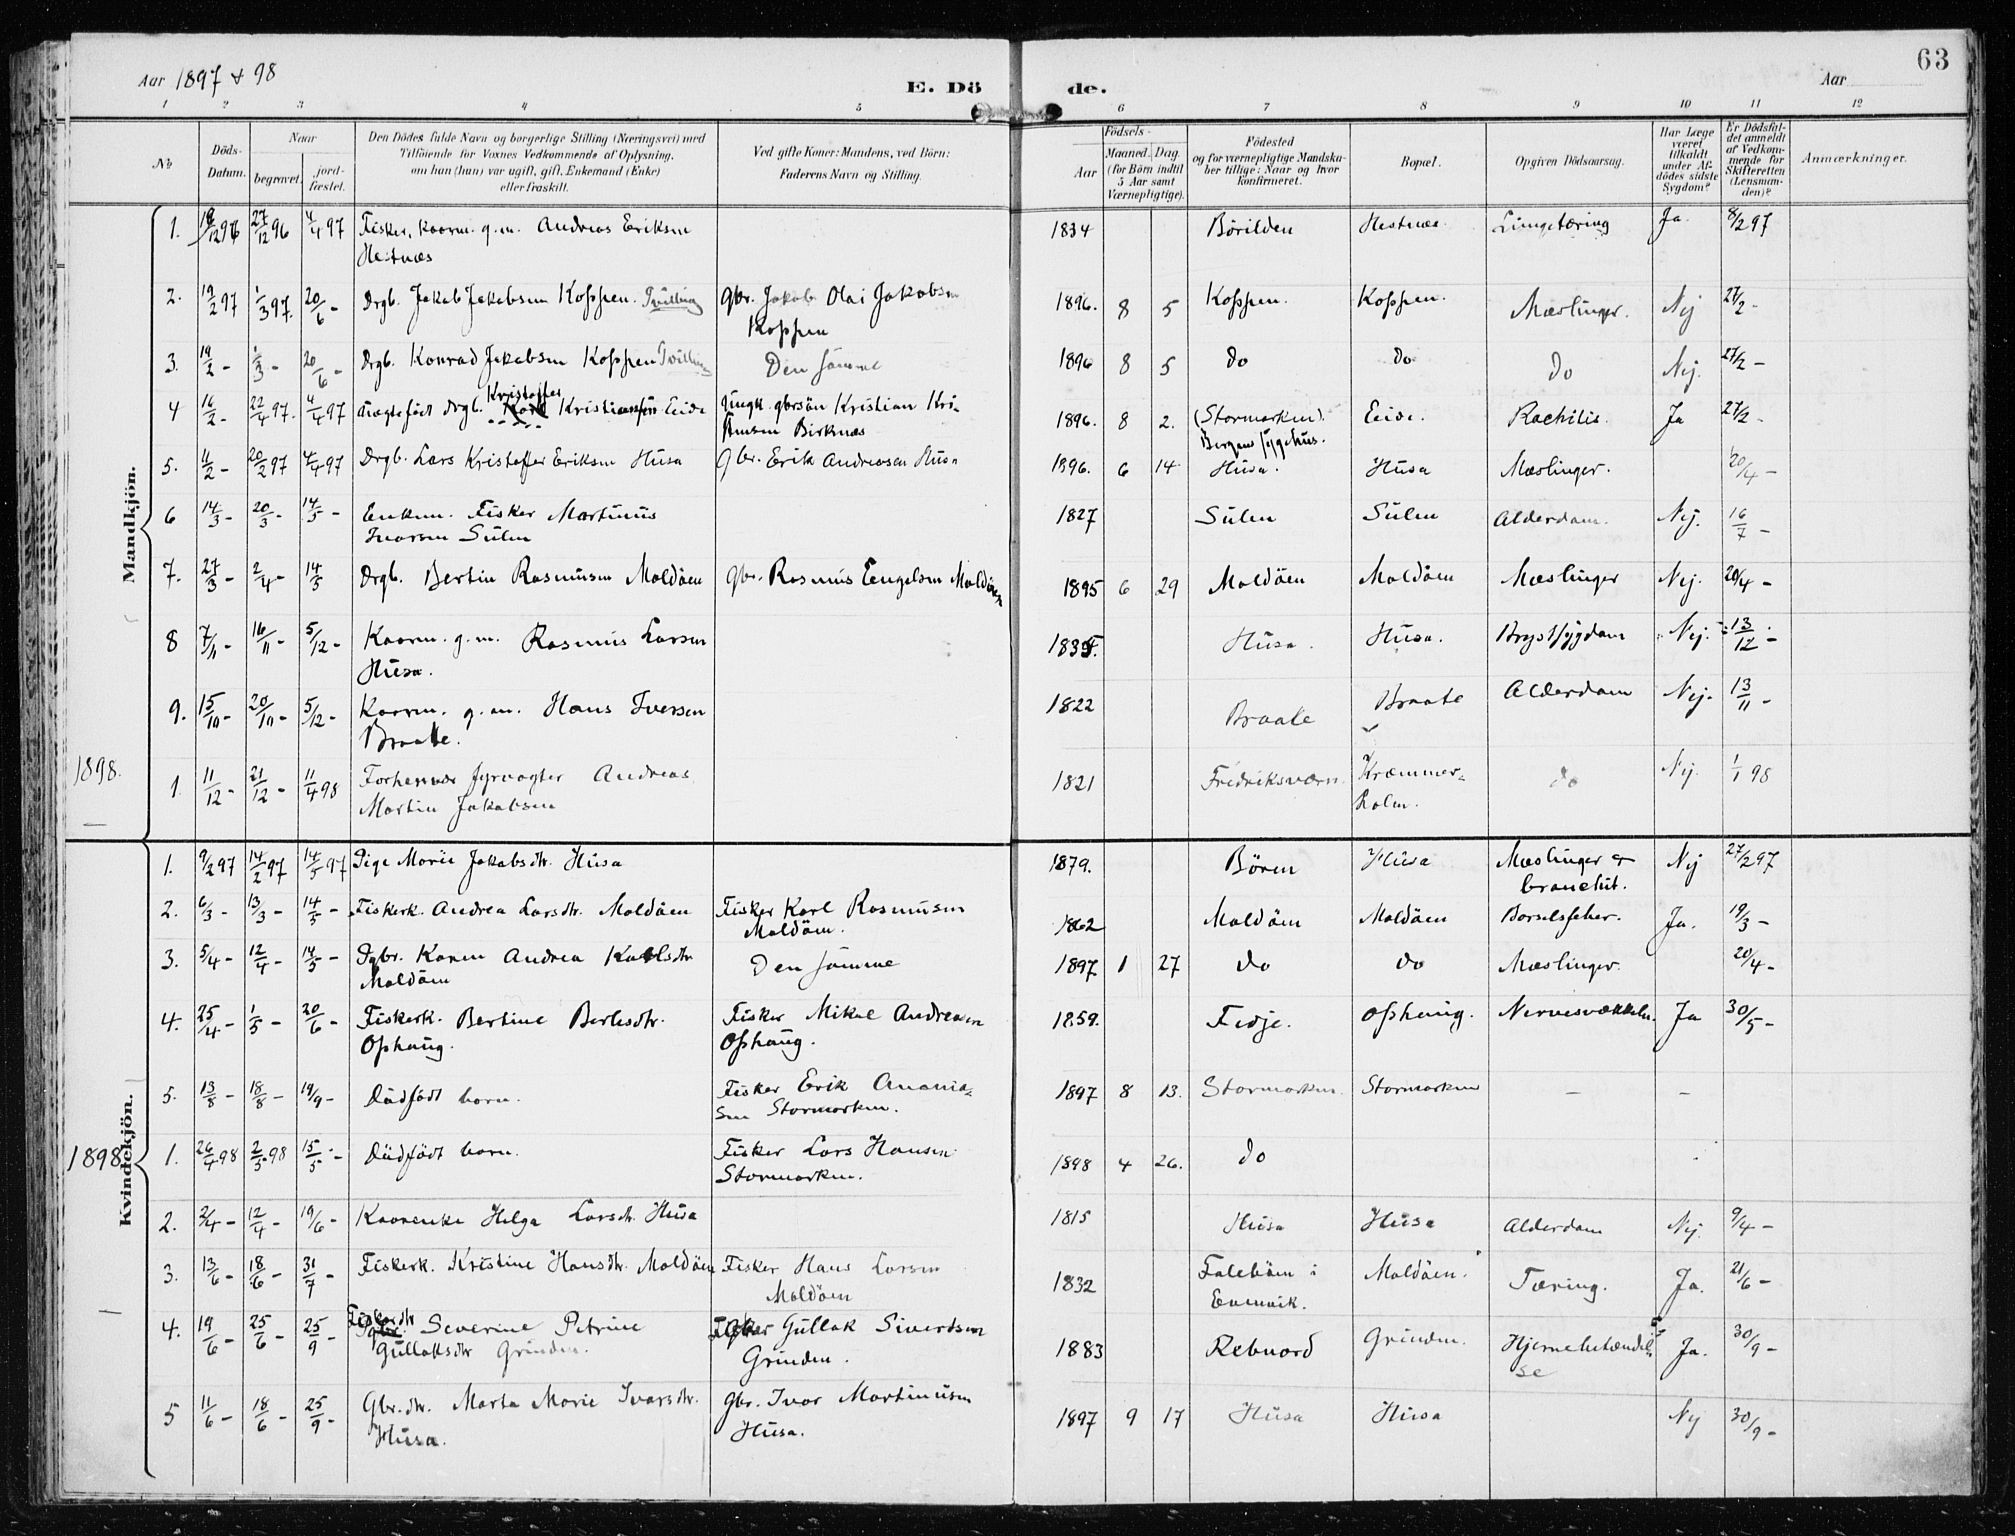 63
Aar 1897 + 98
E. Dö de.
Aar
1 2 3 4 5 6 7 8 9 10 11 12
No
Döds-Datum.
Naar
begravet.
jord-fæstet.
Den Dödes fulde Navn og borgerlige Stilling (Næringsvei) med
Tilföiende for Voxnes Vedkommende af Oplysning,
om han (hun) var ugift, gift, Enkemand (Enke)
eller fraskilt.
Ved gifte Koner: Mandens, ved Börn:
Faderens Navn og Stilling.
Födsels-
Aar
Maaned. Dag
(for Börn indtil
5 Aar samt
Værnepligtige).
Födested
og for værnepligtige Mandska-
ber tillige: Naar og hvor
konfirmeret.
Bopæl.
Opgiven Dödsaarsag.
Har Læge
været
tilkaldt
under Af-
dödes sidste
Sygdom?
Er Dödsfal-
det anmeldt
af Vedkom-
mende for
Skifteretten
(Lensman-
den)?
Anmærkninger.
Mandkjön.
1. 18/12 96 27/12 96 4/4 97 Fisker, kaarm. g.m. Andreas Eriksen 1834 Börilden Hestnæs Lungetæring Ja. 8/2 97
Hestnæs
2. 19/2 97 1/3 97. 20/6 - Drgb. Jakob Jakobsen Koppen. Tvilling Gbr. Jakob Olai Jakobsen 1896. 8 5 Koppen. Koppen. Mæslinger. Nej 27/2 -
Koppen
3. 19/2 - 1/3 - 20/6 - Drgb. Konrad Jakobsen Koppen Tvilling Den samme 1896 8 5 do do do Nej. 27/2 -
Kristoffer
4 16/2 - 22/4 97. 4/4 97 uægtefödt drgb. Kristiansen Eide Ungk. gbrsön Kristian Kri- 1896. 8 2. (Stormarken). Eide. Rachitis. Ja 27/2 -
stensen Birknæs Bergens sygehus.
5. 11/2 - 20/2 97 4/4 97 Drgb. Lars Kristoffer Eriksen Husa Gbr. Erik Andreasen Husa 1896. 6 14 Husa. Husa Mæslinger. 20/4 -
6 14/3 - 20/3 - 14/5 - Enkem. Fisker Martinus 1827 Sulen Sulen Alderdom. Nej. 16/7 -
Ivarsen Sulen
7. 27/3 - 2/4 - 14/5 Drgb. Bertin Rasmusen Moldöen Gbr. Rasmus Engelsen Moldöen 1895 6 29 Moldöen Moldöen Mæslinger Nej. 20/4 -
8 7/11 - 16/11 - 5/12 - Kaarm. g.m. Rasmus Larsen Husa. Husa. Brystsygdom Nej. 13/12 -
Husa.
9. 15/10 - 20/10 - 5/12 - Kaarm. g.m. Hans Iversen 1822 Braate Braate Alderdom Nej. 13/11 -
Braate.
1898.
1 11/12 - 21/12 - 11/4 98 Forhenvær fyrvogter Andreas 1821 Fredriksværn. Kræmmer- do Nej. 1/1 98
Martin Jakobsen holm.
Kvindekjön.
1. 9/2 97 14/2 97 14/5 97 Pige Marie Jakobsdtr. Husa 1879. Böen Husa Mæslinger & Nej 27/2 97
bronchit.
2. 6/3 - 13/3 - 14/5 - Fiskerk. Andrea Larsdtr. Moldöen Fisker Karl Rasmusen 1862 Moldöen Moldöen Barselfeber. Ja. 19/3 -
Moldöen.
3. 5/4 - 12/4 - 14/5 - Pgbr. Karen Andrea Karlsdtr Den samme 1897 1 27 do do Mæslinger. 20/4 -
Moldöen
4. 25/4 - 1/5 - 20/6 - Fiskerk. Bertine Bertesdtr. Fisker Mikal Andreasen 1859. Fedje. Ophaug. Nervesvækkelse. Ja 30/5 -
Ophaug. Ophaug.
5. 13/8 - 18/8 - 19/9 - Dödfödt barn. Fisker Erik Anania- 1897 8 13. Stormarken. Stormarken - -
sen Stormarken.
1898
1. 26/4 98 2/5 98 15/5 - Dödfödt barn. Fisker Lars Hansen 1898 4 26. do
Stormarken.
2. 2/4 - 12/4 - 19/6 - Kaarenke Helga Larsdtr. Husa 1815 Husa Husa Alderdom Nej. 9/4 -
3. 13/6 - 18/6 - 31/7 - Fiskerk. Kristine Hansdtr. Moldöen Fisker Hans Larsen 1832 Faleböen i Moldöen. Tæring. Ja. 21/6 -
Moldöen Evenvik.
4. 19/6 - 25/6 - 25/9 - Fiskerdtr Severine Petrine Fisker Gullak Sivertsen 1883 Rebnord Grinden. Hjernebetændel- Ja. 30/9 -
Gullaksdtr Grinden. Grinden. se
5 11/6 - 18/6 - 25/9 - Gbr.dtr. Marta Marie Ivarsdtr. Gbr. Ivar Martinusen 1897 9 17 Husa Husa Nej 30/9 -
Husa. Husa.